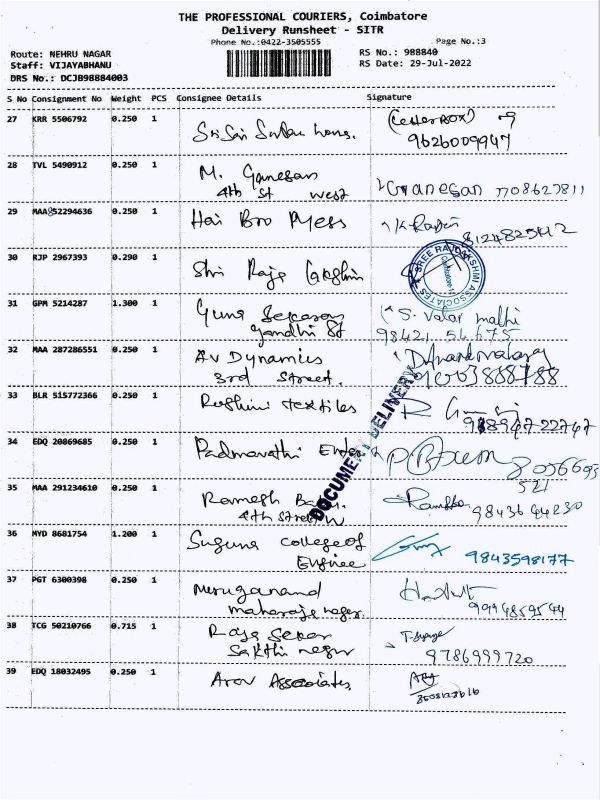 THE PROFESSIONAL COURIERS, Coimbatore
Delivery Runsheet - SITR
Phone No.:0422-3505555 Page No.:3
Route: NEHRU NAGAR RS No.: 988840
Staff: VIJAYABHANU RS Date: 29-Jul-2022
DRS No.: DCJB98884003
S No Consignment No Weight PCS Consignee Details Signature
27 KRR 5506792 0.250 1 (Letter BOX)
9626009947
28 TVL 5490912 0.250 1 M. Ganesan
4th St West Ganesan 7708627811
29 MAA 852294636 0.250 1 Hai Bro Mess
30 RJP 2967393 0.290 1 Shri Raja Lakshmi
SREE RAJALAKSHMI ASSOCIATES
31 GPM 5214287 1.300 1 Guna Sekaran S. Valar mathi
Gandhi St 98421 54675
32 MAA 287286551 0.250 1 AV Dynamics
3rd Street.
33 BLR 515772366 0.250 1 Rashini textiles
DOCUMENT DELIVERY
34 EDQ 20869685 0.250 1 Padmavathi Enter
35 MAA 291234610 0.250 1 Ramesh
4th Street W
36 MYD 8681754 1.200 1 Suguna college of
Enginee 9843598177
37 PGT 6300398 0.250 1 Muruganand
maharaja nagar.
38 TCG 50210766 0.715 1 Raja Sekar
Sakthi nagar 9786999720
39 EDQ 18032495 0.250 1 Arov Associates.